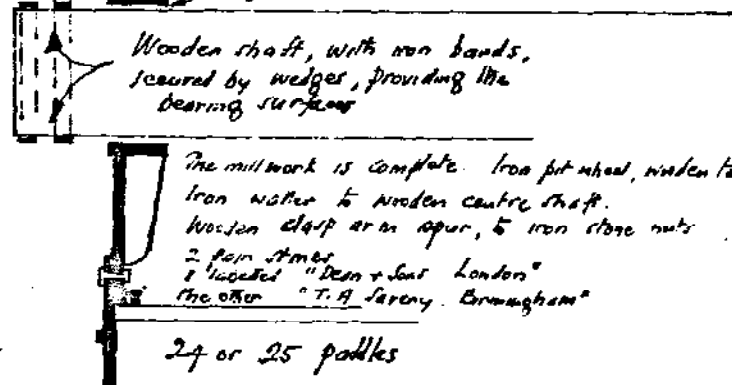 Wooden shaft, with iron bands,
secured by wedges, providing the
bearing surfaces
The millwork is complete. Iron pit wheel, wooden
Iron waller to wooden centre shaft.
Wooden clasp arm spur, to iron stone nuts
2 pair stones
1 labelled "Dean + Sons London"
the other "T. A Saveny. Birmingham"
24 or 25 paddles